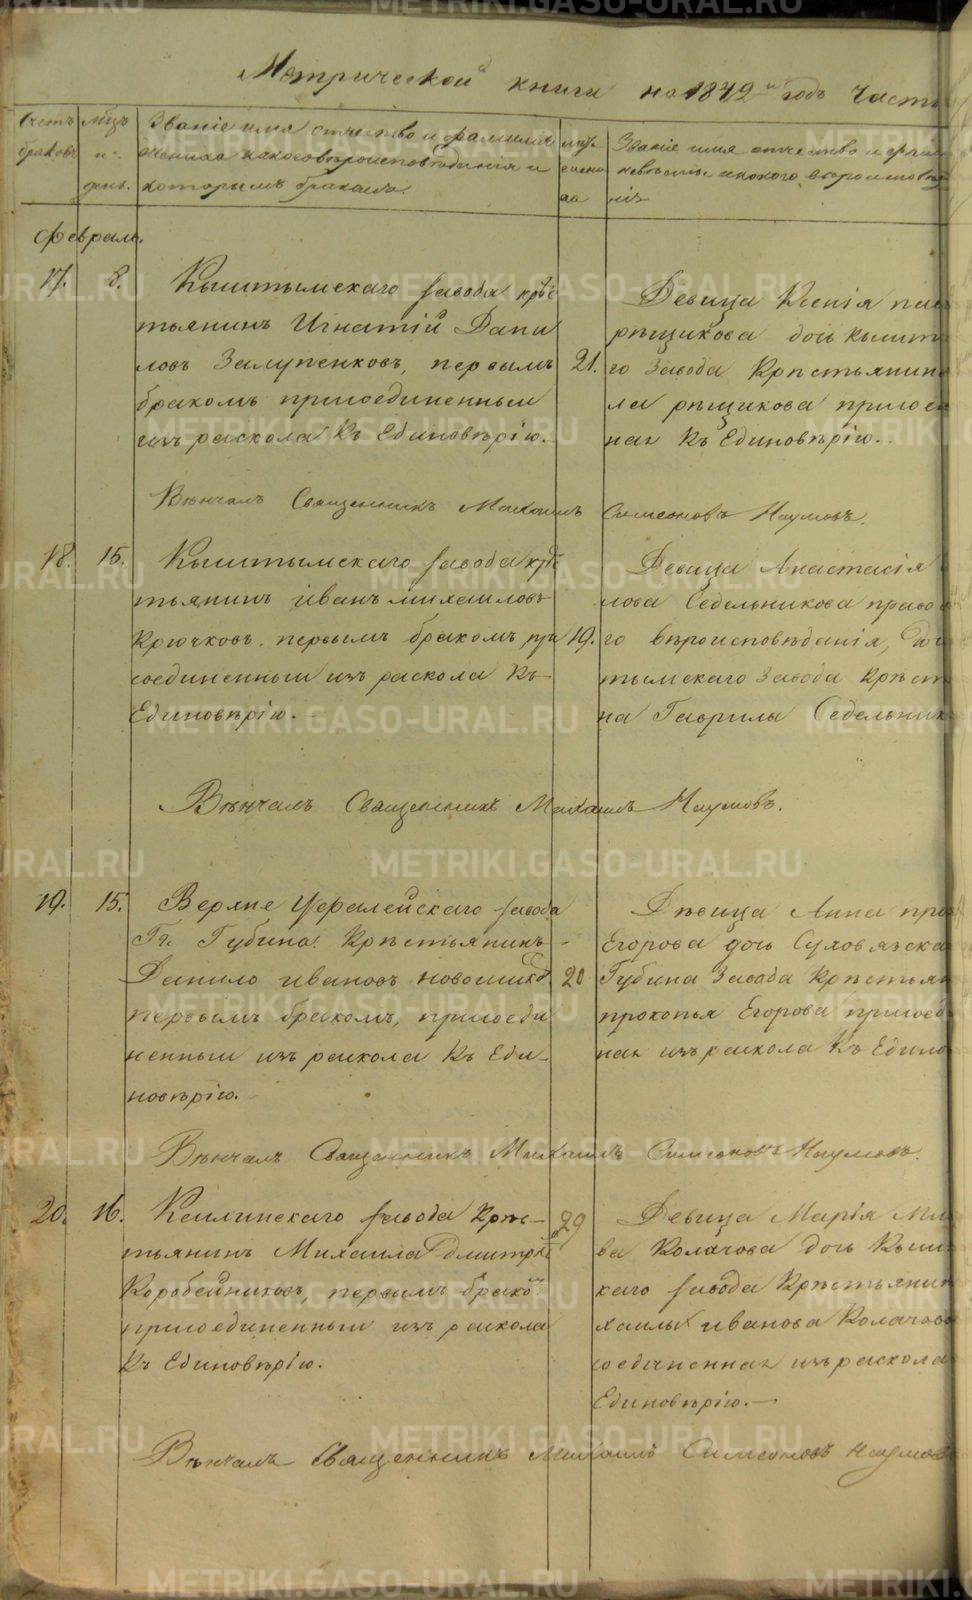 Метрической книги на 1842й годъ часть
Счетъ браковъ
Мцъ и день.
Званіе имя отчество и фамилия
жениха какого вѣроисповѣданія и
которымъ бракомъ.
Званіе имя отчество и фами
невѣсты и какого вѣроисповѣ
нія
Февраль.
17. 8.
Кыштымскаго завода крѣс
тьянинъ Игнатій Дани
ловъ Залупенковъ, первымъ
бракомъ присоединенный
изъ раскола Къ Единовѣрію.
21.
Девица Ксенія
рѣщикова дочь Кышт
го Завода Крѣстьянин
ла рѣщикова присое
ная Къ Единовѣрію.
Вѣнчалъ Священникъ Михаилъ Симеоновъ Наумовъ.
18. 15.
Кыштымскаго завода крѣс
тьянинъ иванъ михаиловъ
Крючковъ. первымъ бракомъ, при
соединенный изъ раскола Къ
Единовѣрію.
19.
Девица Анастасія
лова Седельникова право
го вѣроисповѣданія, до
тымскаго Завода Крѣст
на Гаврила Седельник
Вѣнчалъ Священникъ Михаилъ Наумовъ.
19. 15.
Верхне Уфалейскаго завода
Гг. Губина Крѣстьянинъ
Данило ивановъ
первымъ бракомъ, присоеди
ненный изъ раскола Къ Еди-
новѣрію.
20
Дѣвица Анна про
Егорова дочь Суховязска
Губина Завода Крѣстьян
прокопья Егорова присоед
ная изъ раскола Къ Едино
Вѣнчалъ Священникъ Михаилъ Симеоновъ Наумовъ.
20. 16.
Каслинскаго завода Крѣс-
тьянинъ Михаила Дмитріев
Коробейниковъ, первымъ брако
присоединенный изъ раскола
Къ Единовѣрію.
29
Девица Марія Ми
ва Колачова дочь Кыш
скаго завода Крѣстьянин
хаилы иванова Колачова
соединенная изъ раскола
Единовѣрію.
Вѣнчалъ Священникъ Михаилъ Симеоновъ Наумов
METRIKI.GASO-URAL.RU